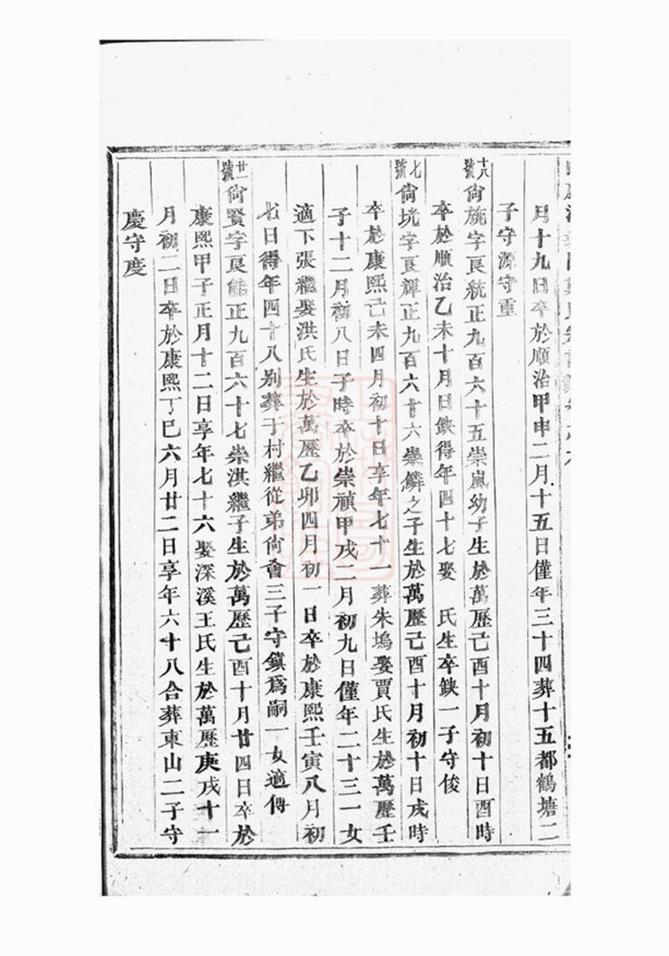 月十九日卒於順治甲申二月十五日僅年三十四葬十五都鶴塘二
子守源守重
十八號尙旒字良統正九百六十五崇嵐幼子生於萬歷己酉十月初十日酉時
卒於順治乙未十月日缺得年四十七娶 氏生卒缺一子守俊
七號尙珖字良輝正九百六十六崇鱗之子生於萬歷己酉十月初十日戌時
卒於康熙己未四月初十日享年七十一葬朱塢娶賈氏生於萬歷壬
子十二月初八日子時卒於崇禎甲戌二月初九日僅年二十三一女
適下張繼娶洪氏生於萬歷乙卯四月初一日卒於康熙壬寅八月初
七日得年四十八别葬于村繼從弟尙會三子守鎮爲嗣一女適傅
廿一號尙賢字良能正九百六十七崇淇繼子生於萬歷己酉十月廿四日卒於
康熙甲子正月十二日享年七十六娶深溪王氏生於萬歷庚戌十一
月初二日卒於康熙丁巳六月廿二日享年六十八合葬東山二子守
慶守度